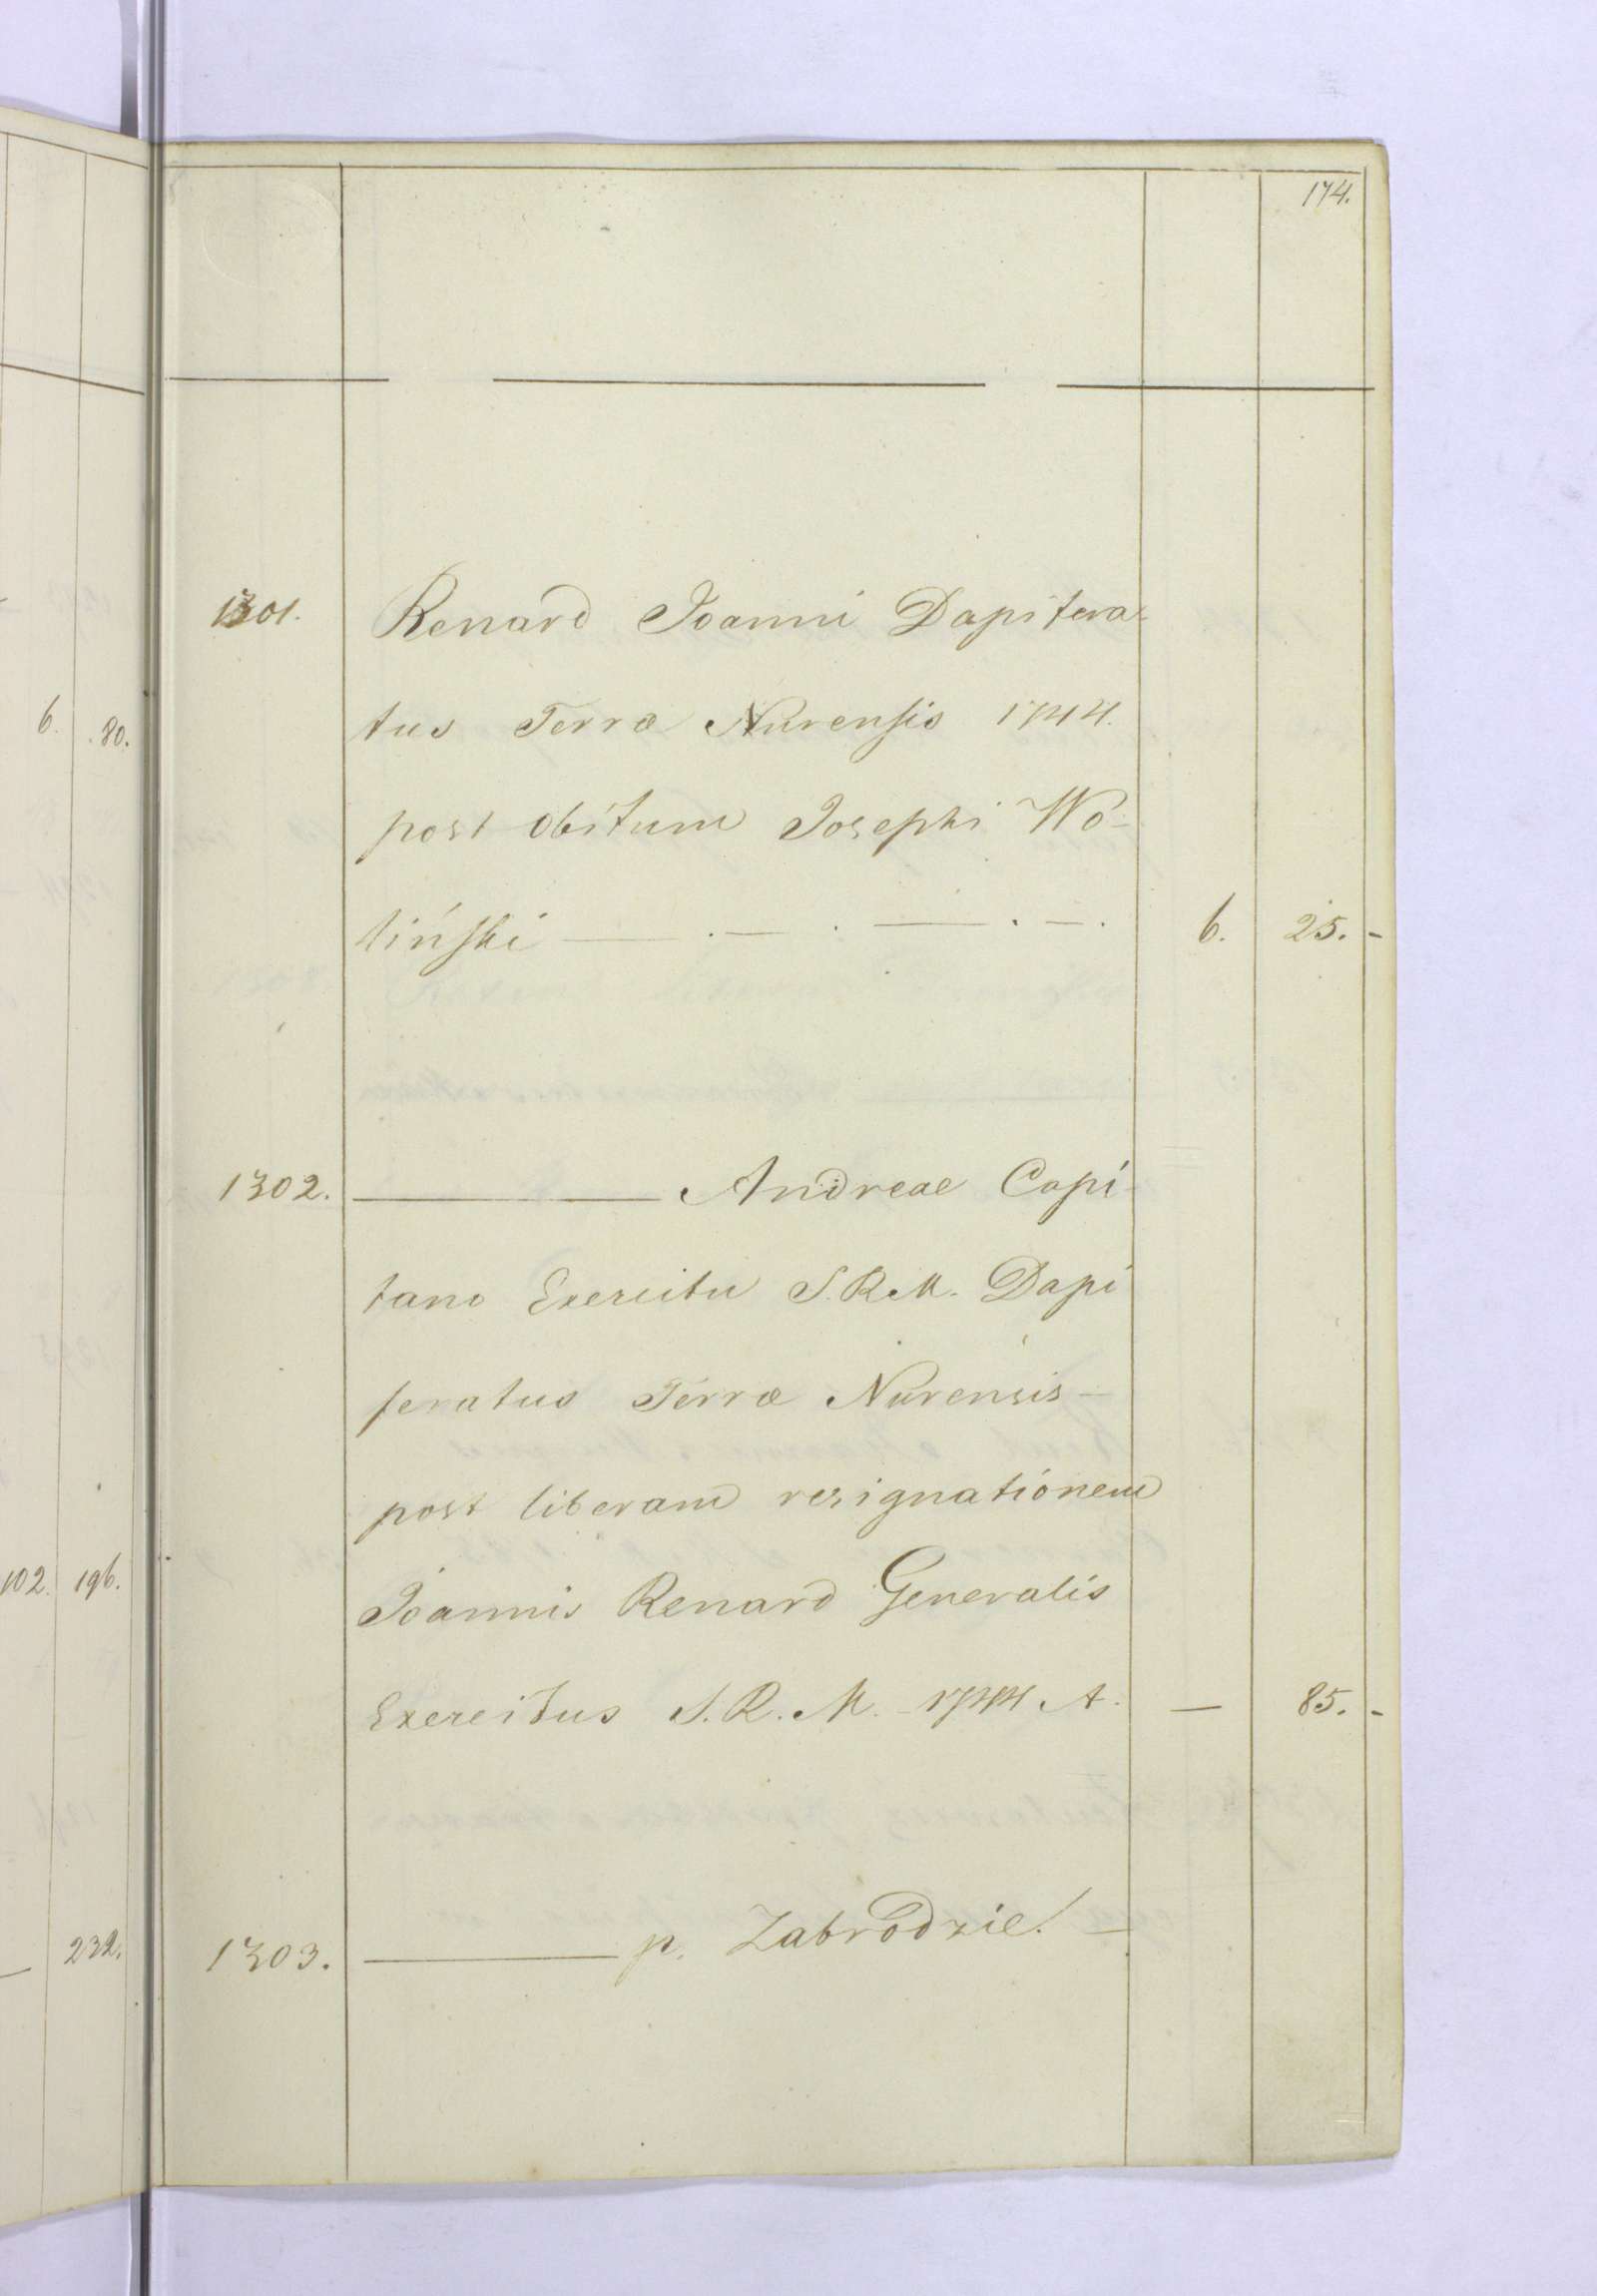 174.
1301. Renard Joanni Dapifera-
tus Terræ Nurensis 1744.
post obitum Josephi Wo-
liński — . — . — . — . 6. 25. -
1302. ——— Andreae Capi-
tano Exercitu S.R.M. Dapi
feratus Terræ Nurensis —
post liberam resignationem
Joannis Renard Generalis
Exercitus S.R.M. 1744 A. — 85. -
1303. ——— p. Zabrodzie. —
6. 80.
102. 196.
— 232.